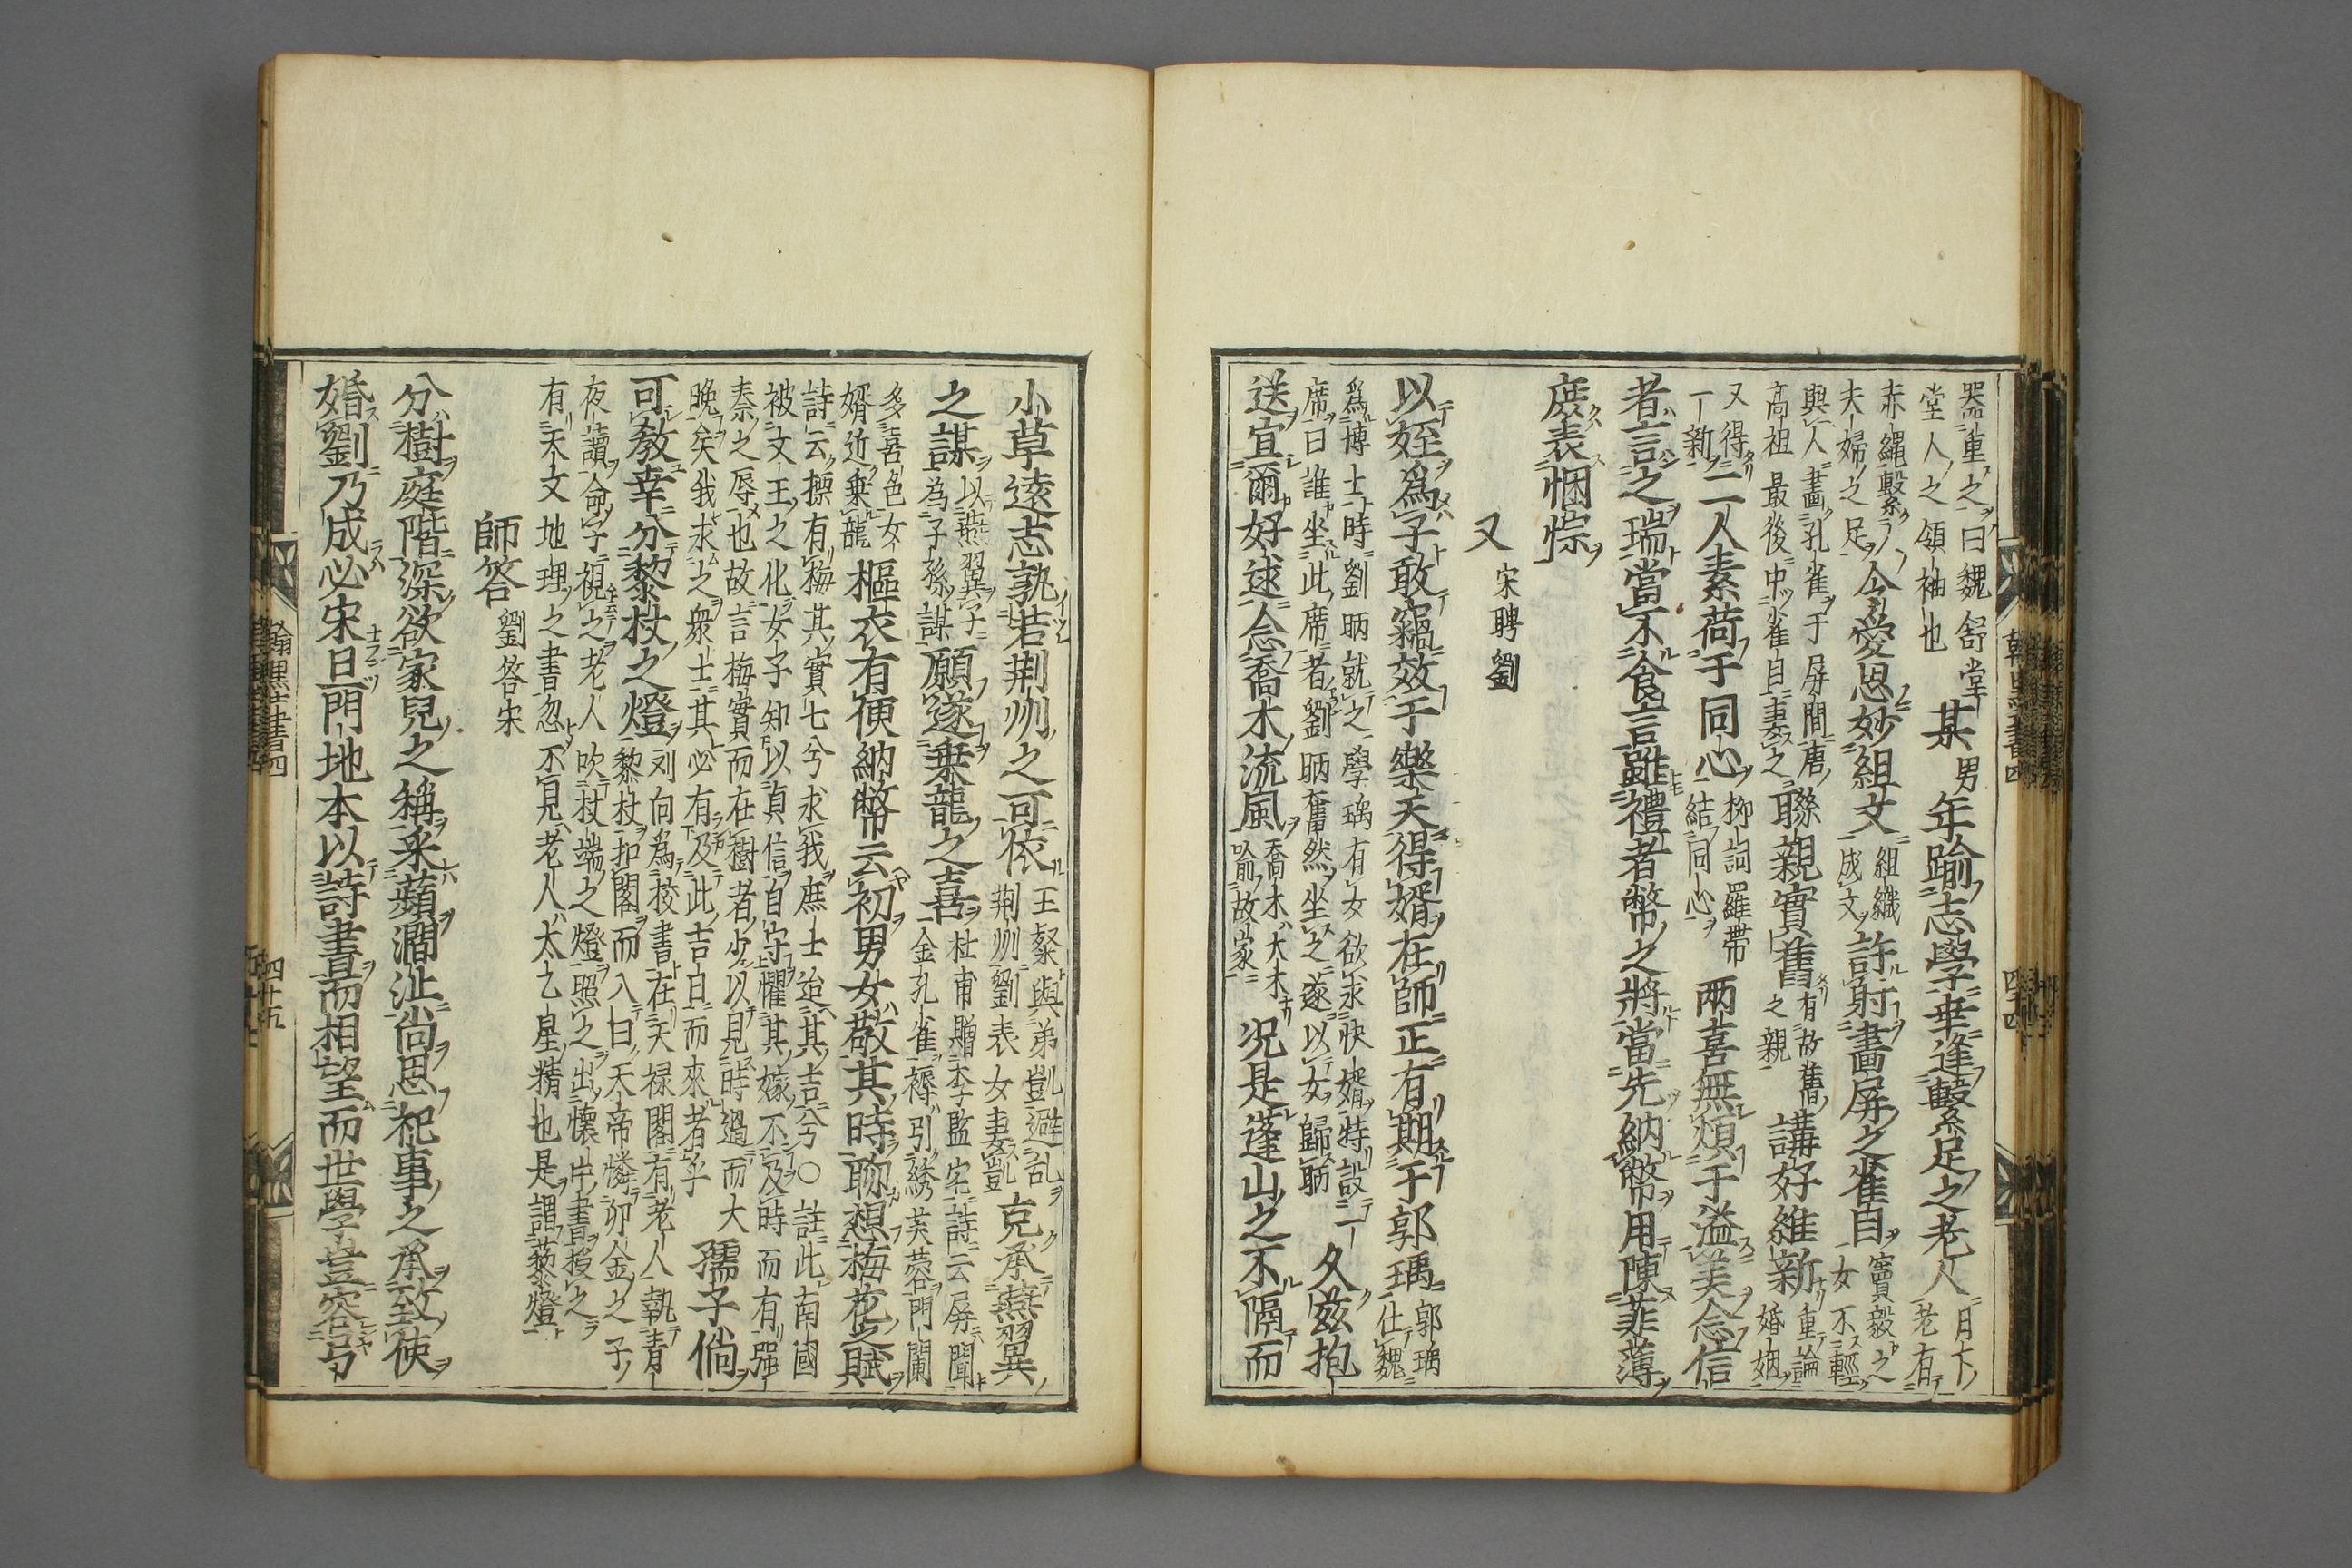 器重之曰魏舒堂
堂人之領袖也
某男年踰志學幸逢繫足之老人
月下
老有
赤繩繫
夫婦之足
今爲愛思妙組文
組織
成文
許射畵屏之雀目
竇毅之
女不輕
與人畵孔雀于屏間唐
高祖最後中雀目妻之
聯親實舊
有故舊
之親
講好維新
重論
婚姻
又得
一新
二人素荷于同心
柳詞羅帶
結同心
两喜無煩于溢美念信
者言之瑞當不食言雖禮者幣之將當先納幣用陳菲薄
庶表悃悰
又 宋聘劉
以姪爲子敢竊效于樂天得婿在師正有期于郭瑀
郭瑀
仕魏
爲博士時劉昞就之學瑀有女欲求快婿特設一
席曰誰坐此席者劉昞奮然坐之遂以女歸昞
久兹抱
送宜爾好逑念喬木流風
喬木大木
喻故家
况是蓬山之不隔而
翰墨全書四
四十四
小草遠志孰若荆州之可依
王粲與弟凱避乱
荆州劉表女妻凱
克承燕翼
之謀
以燕翼子
為子孫謀
願遂乗龍之喜
杜甫贈李監宅詩云屏聞
金孔雀褥引綉芙蓉門闌
多喜色女
婿近乗龍
樞衣有便納幣云初男女敬其時聊想梅花之賦
詩云摽有梅其實七兮求我庶士迨其吉兮○註此南國
被文王之化女子知以貞信自守懼其嫁不及時而有强
㤗之辱也故言梅實而在樹者少以見時過而大
晚矣我求之衆士其必有及此吉日而來者乎
孺子倘
可敎幸分藜杖之燈
刘向為校書在天禄閣有老人執青
黎杖扣閣而入曰天帝憐卯金之子
夜讀命予視之老人吹杖端之燈照之出懷中書授之
有天文地理之書忽不見老人太乙星精也是謂藜燈
師答 劉答宋
分樹庭階深欲家兒之稱采蘋澗沚尚思祀事之承致使
婚劉乃成必宋旦門地本以詩書而相望而世學豈容弓
翰墨全書四
四十五